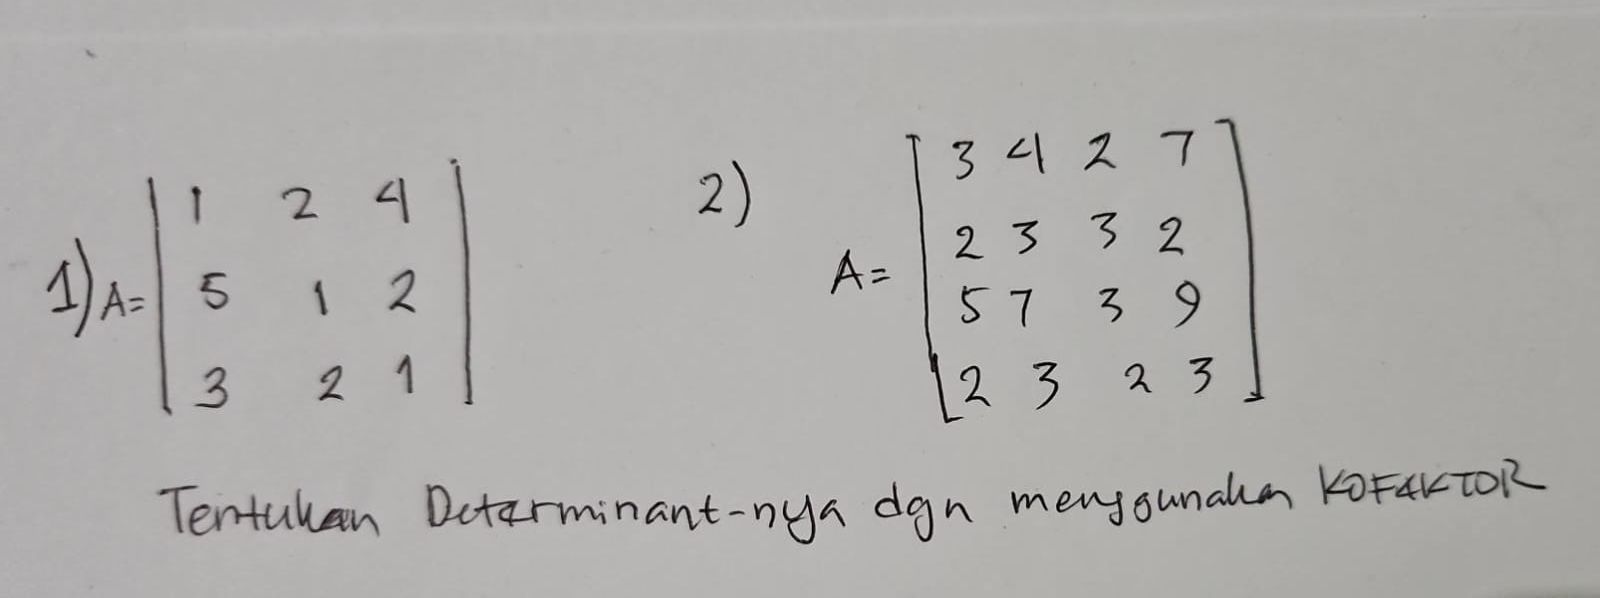 1) A= | 1 2 4 |
| 5 1 2 |
| 3 2 1 |
2) A= [ 3 4 2 7
2 3 3 2
5 7 3 9
2 3 2 3 ]
Tentukan Determinant-nya dgn menggunakan KOFAKTOR